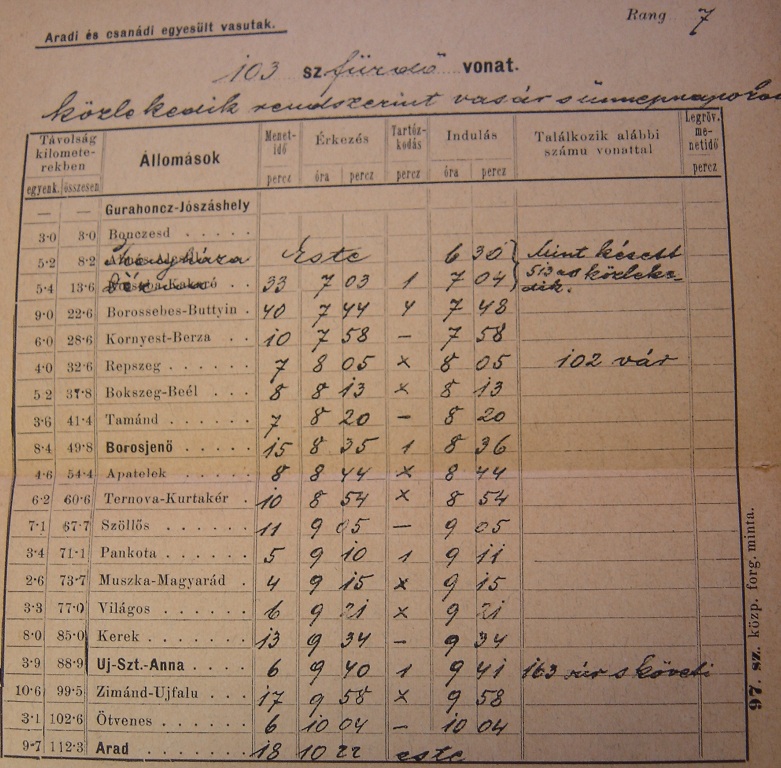 Rang 7
Aradi és csanádi egyesült vasutak.
103 sz fürdő vonat.
közlekedik rendszerint vasár s ünnepnapokon
Távolság kilometerekben Állomások Menetidő Érkezés Tartózkodás Indulás Találkozik alábbi számu vonattal Legröv. menetidő
egyenk. összesen percz óra percz percz óra percz percz
— — Gurahoncz-Jószáshely
3·0 3·0 Bonczesd
5·2 8·2 Menyháza Este 6 30 Mint késett
5·4 13·6 33 7 03 1 7 04 513 as közlekedik.
9·0 22·6 Borossebes-Buttyin 40 7 44 4 7 48
6·0 28·6 Kornyest-Berza 10 7 58 — 7 58
4·0 32·6 Repszeg 7 8 05 × 8 05 102 vár
5 2 37·8 Bokszeg-Beél 8 8 13 × 8 13
3·6 41·4 Tamánd 7 8 20 — 8 20
8·4 49·8 Borosjenő 15 8 35 1 8 36
4·6 54·4 Apatelek 8 8 44 × 8 44
6·2 60·6 Ternova-Kurtakér 10 8 54 × 8 54
7·1 67·7 Szöllős 11 9 05 — 9 05
3·4 71·1 Pankota 5 9 10 1 9 11
2·6 73·7 Muszka-Magyarád 4 9 15 × 9 15
3·3 77·0 Világos 6 9 21 × 9 21
8·0 85·0 Kerek 13 9 34 — 9 34
3·9 88·9 Uj-Szt.-Anna 6 9 40 1 9 41 163 vár s követi
10·6 99·5 Zimánd-Ujfalu 17 9 58 × 9 58
3·1 102·6 Ötvenes 6 10 04 — 10 04
9·7 112·3 Arad 18 10 22 este
97. sz. közp. forg. minta.